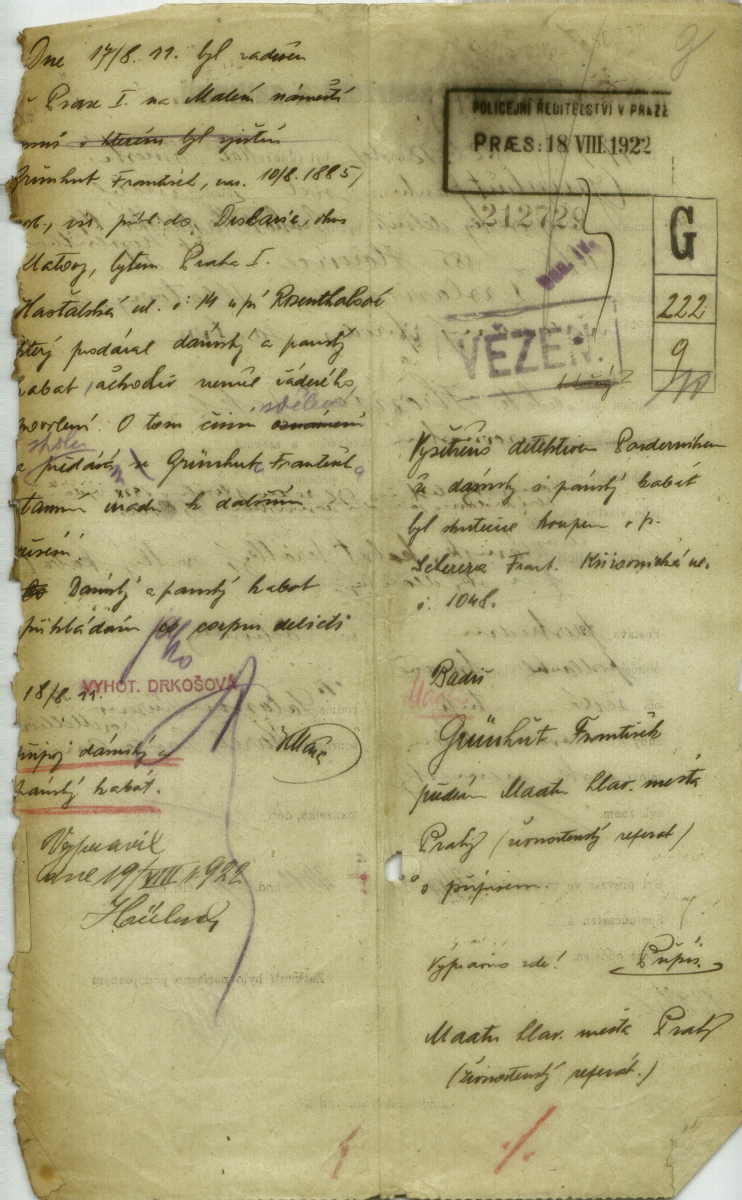 Dne 17/8. 22. byl zadržen
v Praze I. na Malém náměstí
muž o kterém byl zjištěn
Grünhut František, nar. 10/8. 1885,
Matouš, bytem Praha I.
Haštalská ul. č: 14 u pí Rosenthalové
který prodával dámský a pánský
kabát, ačkoliv neměl žádného
povolení. O tom činím oznámení
sdělení
a předává se Grünhut František
tamn. úřadu k dalšímu
řízení.
Dámský a pánský kabát
přikládám co corpus delicti
18/8. 22.
VYHOT. DRKOŠOVÁ
připoj dámský a
pánský kabát.
Vypravil
dne 19/VIII 1922
g
POLICEJNÍ ŘEDITELSTVÍ V PRAZE
PRÆS: 18 VIII. 1922
212729
G
222
9
VĚZEŇ.
Vyšetřeno detektivem
že dámský i pánský kabát
byl skutečně koupen u p.
Frant. Křižovnická ul.
č. 1048.
Grünhut František
předán Maatu hlav. města
Prahy (živnostenský referát)
s přípisem.
Vypraviti zde! Přípis.
Maatu hlav. města Prahy
(živnostenský referát.)